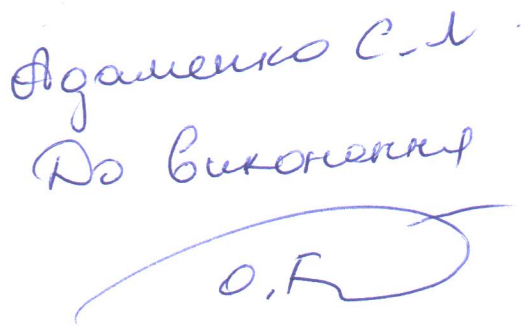 Адаменко С.Л.
До виконання